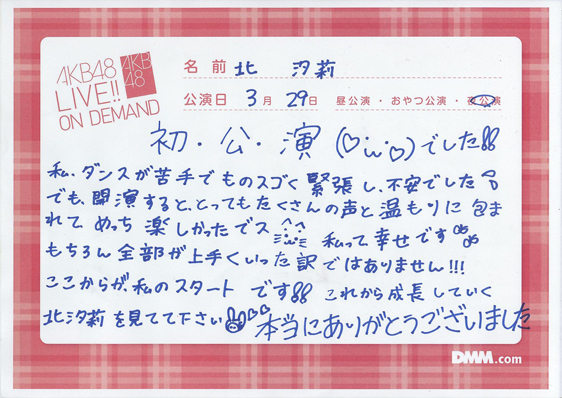 AKB48
LIVE!!
ON DEMAND
AKB
48
名前 北 汐莉
公演日 3月29日 昼公演・おやつ公演・夜公演
初・公・演(♡·ω·♡)でした!!
私、ダンスが苦手でものスゴく緊張し、不安でした
でも、開演すると、とってもたくさんの声と温もりに包ま
れて、めっち楽しかったでス 私って幸せです
もちろん全部が上手くいった訳ではありません!!!
ここからが、私のスタートです!! これから成長していく
北汐莉を見てて下さい♡♡ 本当にありがとうございました
DMM.com